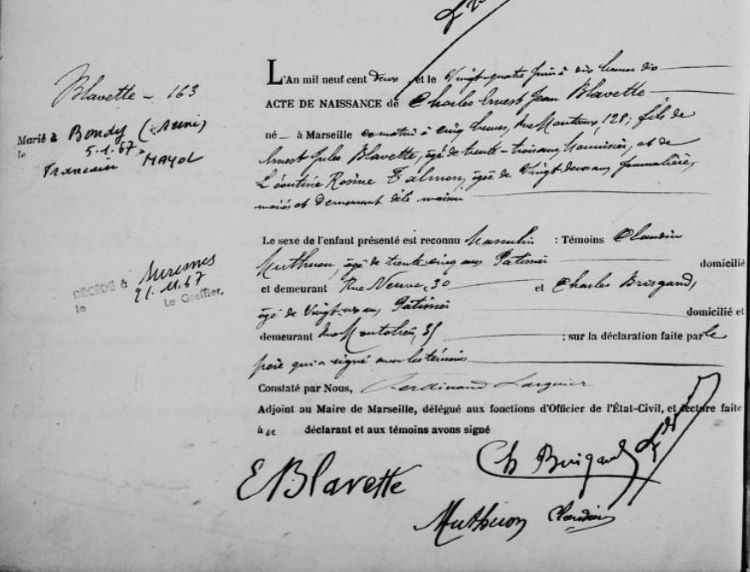 Blavette - 163
Marié à Bondy (Seine)
le 5.1.67
MAYOL
DÉCÉDÉ à Suresnes
le 21.11.67
Le Greffier,
L'An mil neuf cent deux et le Vingt-quatre Juin à dix heures dix
ACTE DE NAISSANCE de Charles Ernest Jean Blavette
né à Marseille ce matin à cinq heures, 128, fils de
Ernest Jules Blavette, âgé de trente-trois ans, et de
Léontine Rosine Talmon, âgée de Vingt-deux ans, journalière,
mariés et demeurant dite maison
Le sexe de l'enfant présenté est reconnu Masculin : Témoins Claudin
Muthuon, âgé de trente cinq ans Patissier domicilié
et demeurant Rue Neuve, 30 et Charles Brisgand,
âgé de Vingt-un ans, Patissier domicilié et
demeurant ; sur la déclaration faite par le
père qui a signé avec les témoins
Constaté par Nous, Ferdinand
Adjoint au Maire de Marseille, délégué aux fonctions d'Officier de l'État-Civil, et lecture faite
au déclarant et aux témoins avons signé
E Blavette
Ch Brisgand
Muthuon Claudin